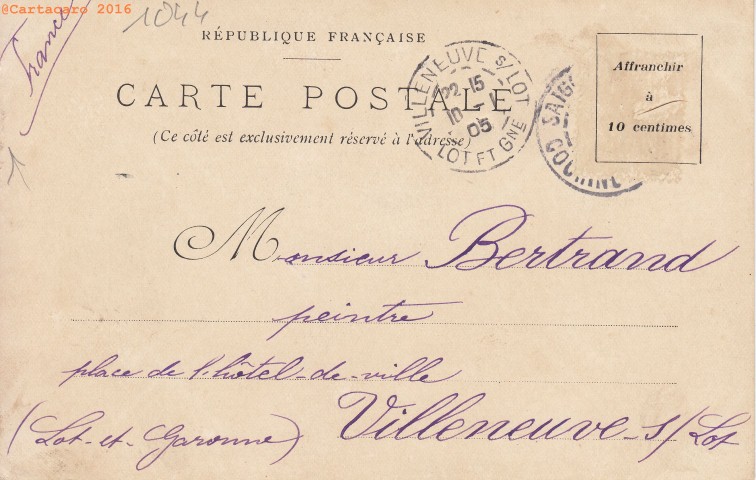 @Cartacaro 2016
1044
France
RÉPUBLIQUE FRANÇAISE
CARTE POSTALE
(Ce côté est exclusivement réservé à l'adresse)
VILLENEUVE S/LOT
22 15
10 - 1
05
LOT ET GNE
SAIG
COCHINC
Affranchir
à
10 centimes
Monsieur Bertrand
peintre
place de l'hôtel-de-ville
(Lot-et-Garonne) Villeneuve-s/Lot